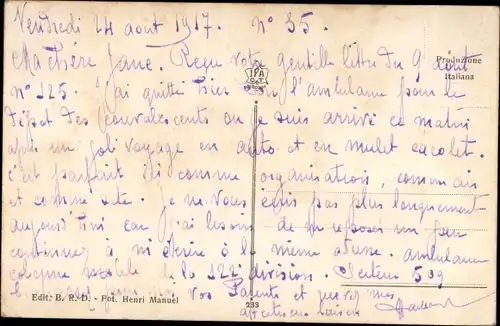 Vendredi 24 aout 1917. N° 35.
Ma Chère Jane. Reçu votre gentille lettre du 9 aout
n° 125. J'ai quitté hier l'ambulance pour le
dépot des convalescents ou je suis arrivé ce matin
après un joli voyage en auto et en mulet cacolet.
c'est parfait ici comme organisation, comme
et comme site. Je ne vous écris pas plus longuement
aujourd'hui car j'ai besoin de me reposer un peu
continuez à m'écrire à la même adresse. ambulance
colonne mobile de la 122e division. Secteur 509
vos Parents et
affectueux
Produzione
Italiana
IPA
CT
Edit. B. R.-D. - Fot. Henri Manuel
233